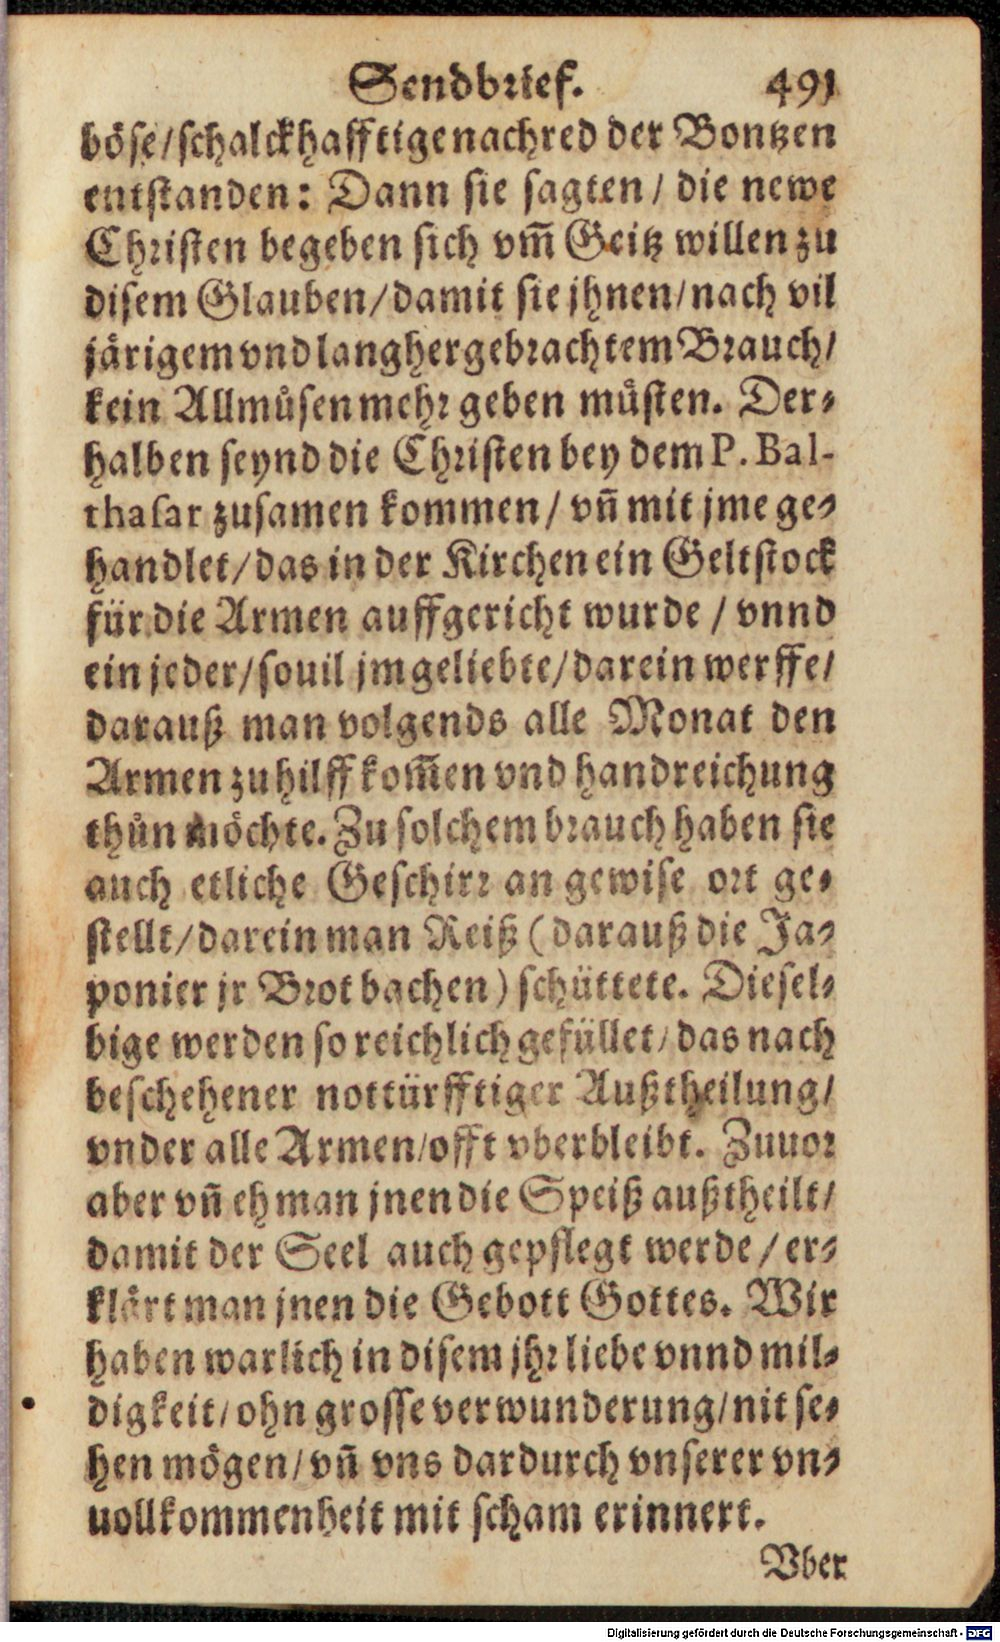 Sendbrief. 491
böse/schalckhafftige nachred der Bontzen
entstanden: Dann sie sagten/ die newe
Christen begeben sich vm̃ Geitz willen zu
disem Glauben/damit sie jhnen/nach vil
järigem vnd langhergebrachtem Brauch/
kein Allmůsen mehr geben müsten. Der-
halben seynd die Christen bey dem P. Bal-
thasar zusamen kommen/ vñ mit jme ge-
handlet/das in der Kirchen ein Geltstock
für die Armen auffgericht wurde / vnnd
ein jeder/souil jm geliebte/darein werffe/
darauß man volgends alle Monat den
Armen zu hilff kom̃en vnd handreichung
thůn möchte. Zu solchem brauch haben sie
auch etliche Geschirr an gewise ort ge-
stellt/darein man Reiß (darauß die Ja-
ponier jr Brot bachen) schüttete. Diesel-
bige werden so reichlich gefüllet/das nach
beschehener nottürfftiger Außtheilung/
vnder alle Armen/offt vberbleibt. Zuuor
aber vñ eh man jnen die Speiß außtheilt/
damit der Seel auch gepflegt werde / er-
klärt man jnen die Gebott Gottes. Wir
haben warlich in disem jhr liebe vnnd mil-
digkeit/ohn grosse verwunderung/nit se-
hen mögen/vñ vns dardurch vnserer vn-
uollkommenheit mit scham erinnert.
Vber
Digitalisierung gefördert durch die Deutsche Forschungsgemeinschaft - DFG